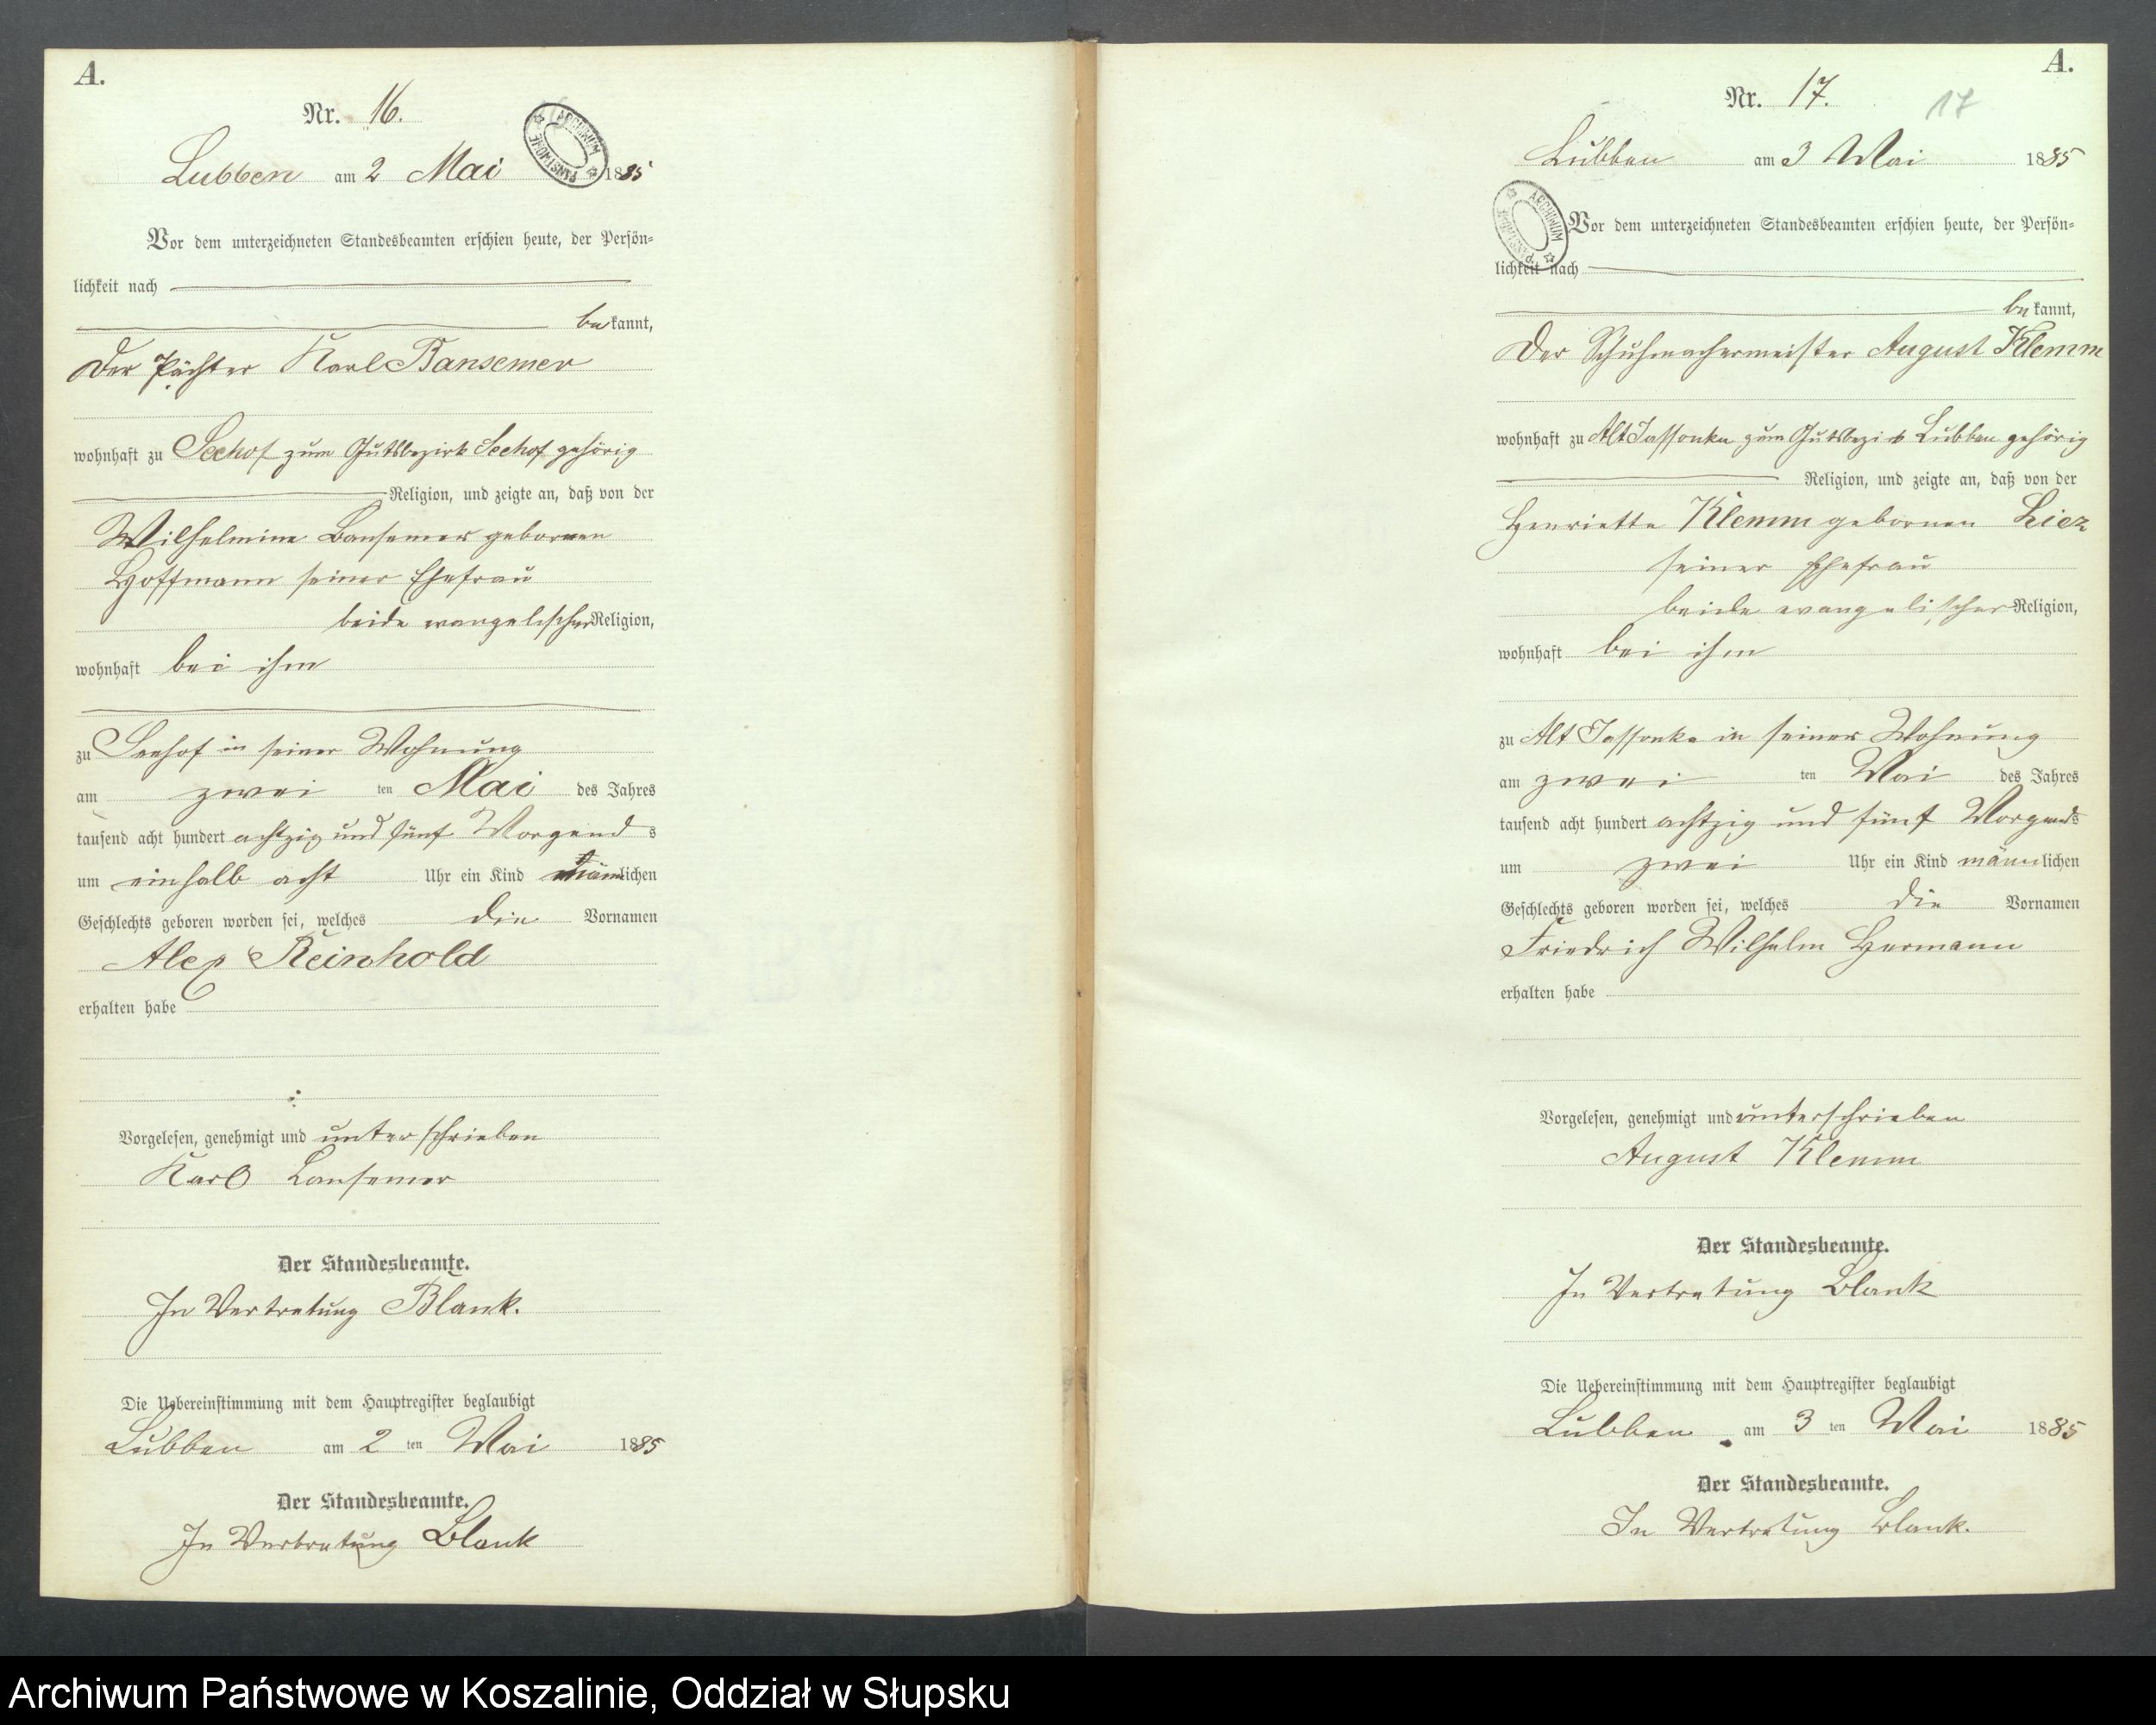 A.
Nr. 16.
ARCHIWUM PAŃSTWOWE
Lubben am 2 Mai 1885
Vor dem unterzeichneten Standesbeamten erschien heute, der Persön=
lichkeit nach
bekannt,
Der Pächter Karl Bansemer
wohnhaft zu Seehof zum Gutsbezirk Seehof gehörig
Religion, und zeigte an, daß von der
Wilhelmine Bansemer gebornen
Hoffmann seiner Ehefrau
beide evangelischer Religion,
wohnhaft bei ihm
zu Seehof in seiner Wohnung
am zwei ten Mai des Jahres
tausend acht hundert achtzig und fünf Morgends
um einhalb acht Uhr ein Kind männlichen
Geschlechts geboren worden sei, welches die Vornamen
Alex Reinhold
erhalten habe
Vorgelesen, genehmigt und unterschrieben
Karl Bansemer
Der Standesbeamte.
In Vertretung Blank.
Die Uebereinstimmung mit dem Hauptregister beglaubigt
Lubben am 2 ten Mai 1885
Der Standesbeamte.
In Vertretung Blank
A.
Nr. 17.
17
Lubben am 3 Mai 1885
ARCHIWUM PAŃSTWOWE
Vor dem unterzeichneten Standesbeamten erschien heute, der Persön=
lichkeit nach
bekannt,
Der Schuhmachermeister August Klemm
wohnhaft zu Alt Jassonke zum Gutsbezirk Lubben gehörig
Religion, und zeigte an, daß von der
Henriette Klemm gebornen Liez
seiner Ehefrau
beide evangelischer Religion,
wohnhaft bei ihm
zu Alt Jassonke in seiner Wohnung
am zwei ten Mai des Jahres
tausend acht hundert achtzig und fünf Morgends
um zwei Uhr ein Kind männlichen
Geschlechts geboren worden sei, welches die Vornamen
Friedrich Wilhelm Hermann
erhalten habe
Vorgelesen, genehmigt und unterschrieben
August Klemm
Der Standesbeamte.
In Vertretung Blank
Die Uebereinstimmung mit dem Hauptregister beglaubigt
Lubben am 3 ten Mai 1885
Der Standesbeamte.
In Vertretung Blank.
Archiwum Państwowe w Koszalinie, Oddział w Słupsku